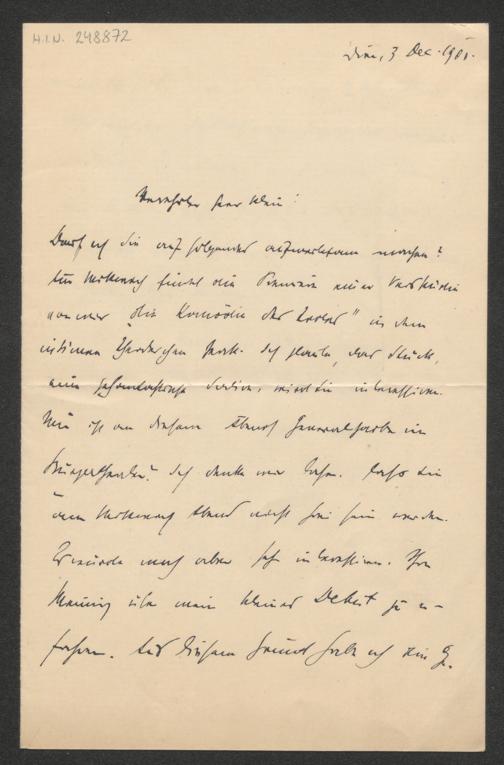 H.I.N. 248872
Wien, 3 Dec. 1901.
Verehrter Herr Klein!
Darf ich Sie auf folgendes aufmerksam machen?
Am Mittwoch findet die Premiere einer
von mir "Die Komödie des" in dem
intimen. Ich glaube, das Stück,
eine Satire, wird Sie interessieren.
Nun ist an diesem Abend Generalprobe im
Ich denke mir daher, dass Sie
am Mittwoch Abend nicht frei sein werden.
Es würde mich aber sehr interessieren, Ihre
Meinung über mein kleines Debut zu er-
fahren. Aus diesem Grund habe ich ein